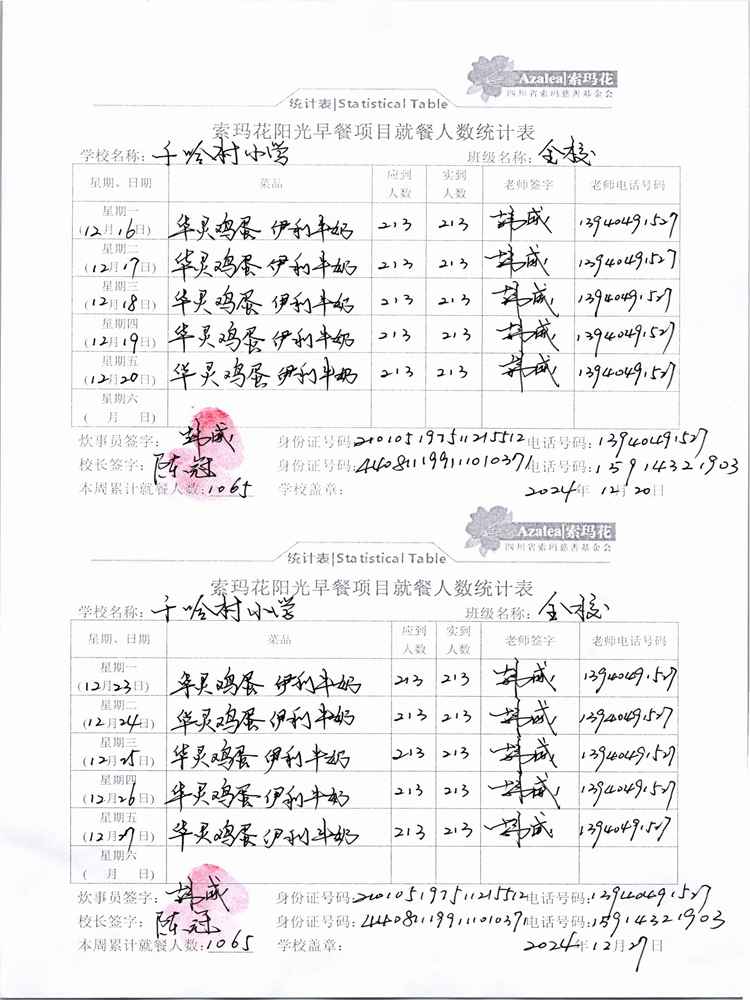 Azalea|索玛花
四川省索玛慈善基金会
统计表|Statistical Table
索玛花阳光早餐项目就餐人数统计表
学校名称:千哈村小学 班级名称:全校
星期、日期 菜品 应到人数 实到人数 老师签字 老师电话号码
星期一 (12月16日) 华灵鸡蛋 伊利牛奶 213 213 韩威 13940491527
星期二 (12月17日) 华灵鸡蛋 伊利牛奶 213 213 韩威 13940491527
星期三 (12月18日) 华灵鸡蛋 伊利牛奶 213 213 韩威 13940491527
星期四 (12月19日) 华灵鸡蛋 伊利牛奶 213 213 韩威 13940491527
星期五 (12月20日) 华灵鸡蛋 伊利牛奶 213 213 韩威 13940491527
星期六 ( 月 日)
炊事员签字: 韩威 身份证号码:210105197511215512 电话号码:13940491527
校长签字: 陈冠 身份证号码:440811199111010371 电话号码:15914321903
本周累计就餐人数:1065 学校盖章: 2024年12月20日
Azalea|索玛花
四川省索玛慈善基金会
统计表|Statistical Table
索玛花阳光早餐项目就餐人数统计表
学校名称:千哈村小学 班级名称:全校
星期、日期 菜品 应到人数 实到人数 老师签字 老师电话号码
星期一 (12月23日) 华灵鸡蛋 伊利牛奶 213 213 韩威 13940491527
星期二 (12月24日) 华灵鸡蛋 伊利牛奶 213 213 韩威 13940491527
星期三 (12月25日) 华灵鸡蛋 伊利牛奶 213 213 韩威 13940491527
星期四 (12月26日) 华灵鸡蛋 伊利牛奶 213 213 韩威 13940491527
星期五 (12月27日) 华灵鸡蛋 伊利牛奶 213 213 韩威 13940491527
星期六 ( 月 日)
炊事员签字: 韩威 身份证号码:210105197511215512 电话号码:13940491527
校长签字: 陈冠 身份证号码:440811199111010371 电话号码:15914321903
本周累计就餐人数:1065 学校盖章: 2024年12月27日